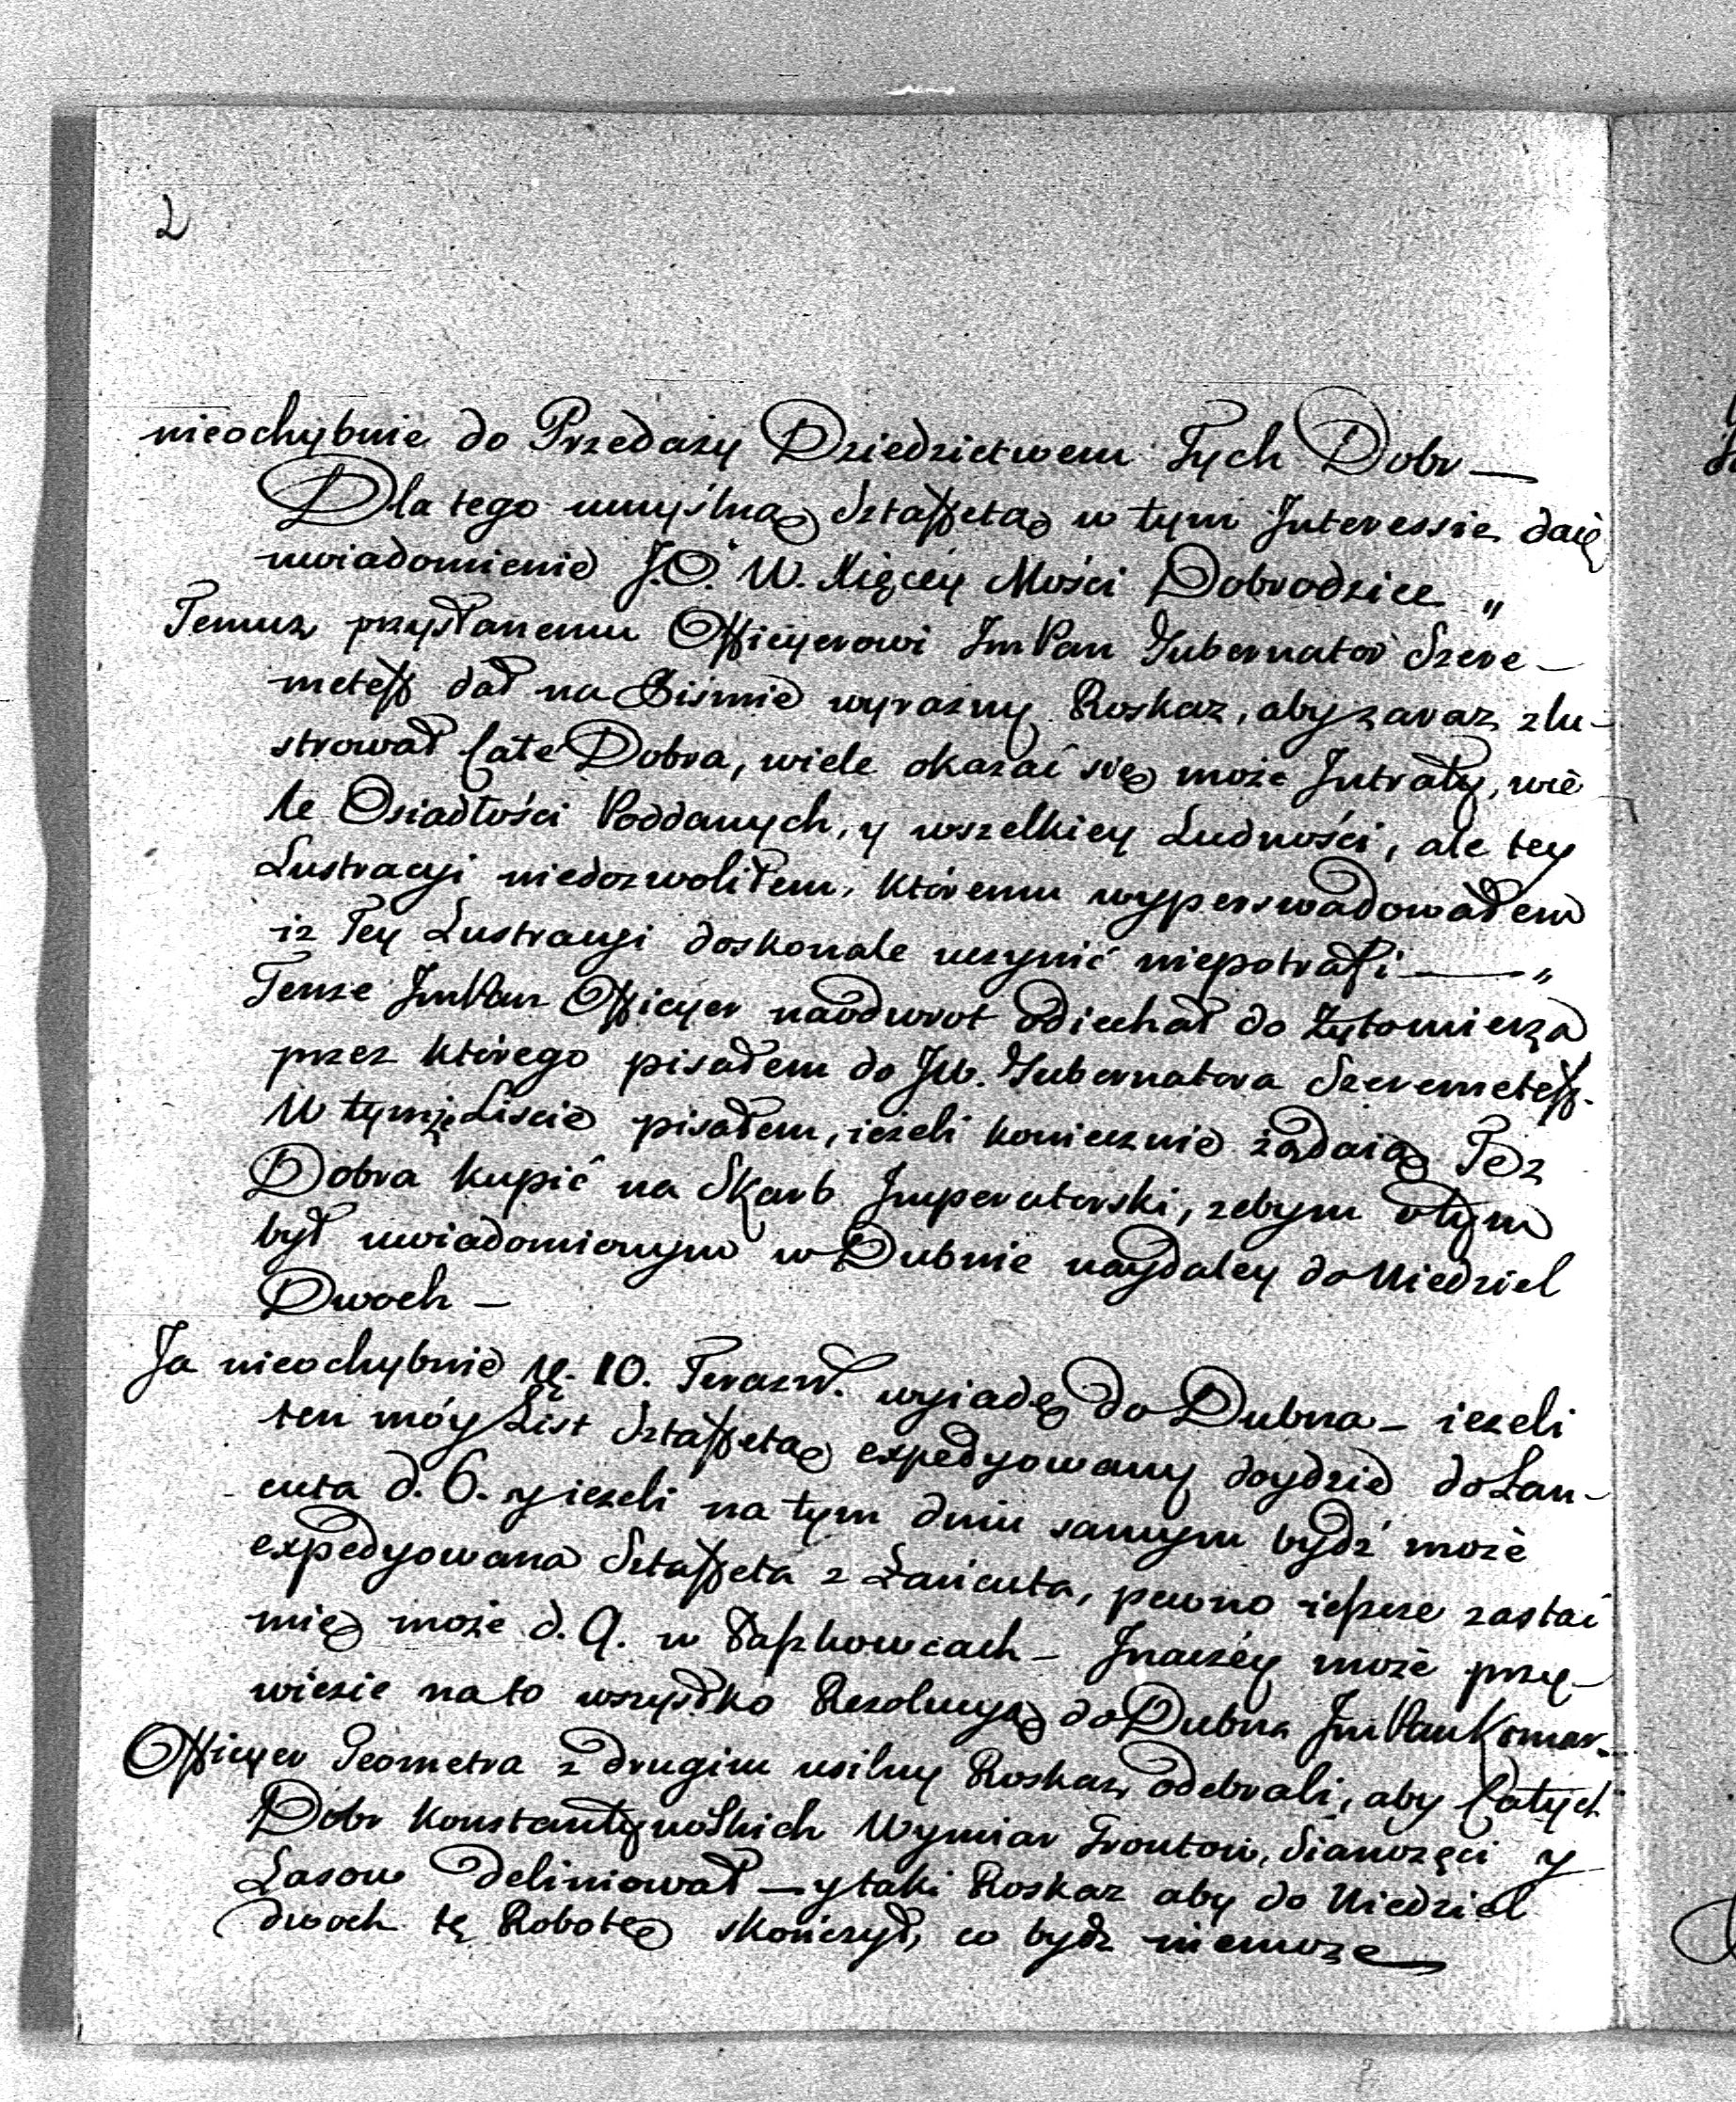 2
nieochybnie do Przedaży Dziedzictwem Tych Dobr —
Dla tego umyślną Sztaffetą w tym Interessie daię
uwiadomienie J.O. W. Xięcey Mości Dobrodzice „
Temuz przysłanemu Officyerowi ImPan Gubernator Szere-
meteff dał na Piśmie wyrazny Roskaz, aby zaraz zlu-
strował Całe Dobra, wiele okazać się może Intraty, wie
le Osiadłości Poddanych, y wszelkiey Ludności, ale tey
Lustracyi niedozwoliłem, któremu wyperswadowałem
iz Tey Lustracyi doskonale uczynić niepotrafi — „
Tenze ImPan Officyer naodwrot odiechał do Zytomierza
przez którego pisałem do JW. Gubernatora Szeremeteff.
W tymże Liscie pisałem, ieżeli koniecznie żądaią Tez
Dobra kupić na Skarb Imperatorski, zebym otym
był uwiadomionym w Dubnie naydaley do Niedziel
Dwoch —
Ja nieochybnie 10. Terazn. wyiadę do Dubna — iezeli
ten móy List Sztaffetą expedyowany doydzie do Łan-
cuta d. 6. y iezeli na tym dniu samym bydź może
expedyowana Sztaffeta z Łańcuta, pewno ieszcze zastać
mię może d. 9. w — Inaczéy może przy-
wiezie nato wszystko Rezolucyą do Dubna ImPan Komar.
Officyer Geometra z drugim usilny Roskaz odebrali, aby Całych
Dobr Konstantynoskich Wymiar Grontow, Sianozęci y
Lasow deliniował — y taki Roskaz aby do Niedziel
dwoch tę Robotę skończył, co bydz niemoze —